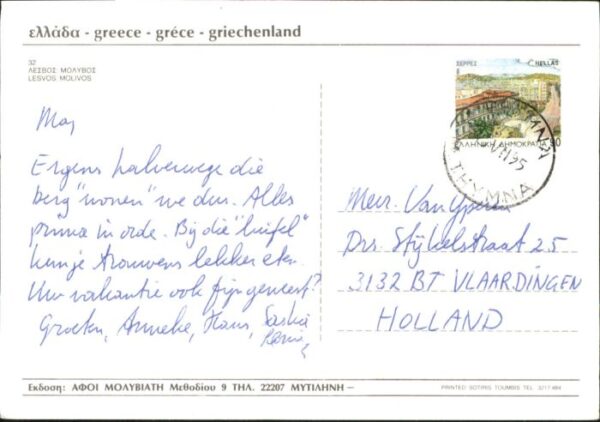 ελλάδα - greece - gréce - griechenland
32
ΛΕΣΒΟΣ ΜΟΛΥΒΟΣ
LESVOS MOLIVOS
ΣΕΡΡΕΣ HELLAS
ΕΛΛΗΝΙΚΗ ΔΗΜΟΚΡΑΤΙΑ 90
THYMNA
Ergens halverwege die
berg "wonen" we dus. Alles
prima in orde. Bij die "luifel"
kun je trouwens lekker eten
Uw vakantie ook fijn geweest?
Groeten, Anneke, Hans, Saskia
Mevr. Van Yperen
Drs. Stijkelstraat 25
3132 BT VLAARDINGEN
HOLLAND
Εκδοση: ΑΦΟΙ ΜΟΛΥΒΙΑΤΗ Μεθοδίου 9 ΤΗΛ. 22207 ΜΥΤΙΛΗΝΗ —
PRINTED SOTIRIS TOUMBIS TEL. 3217-484